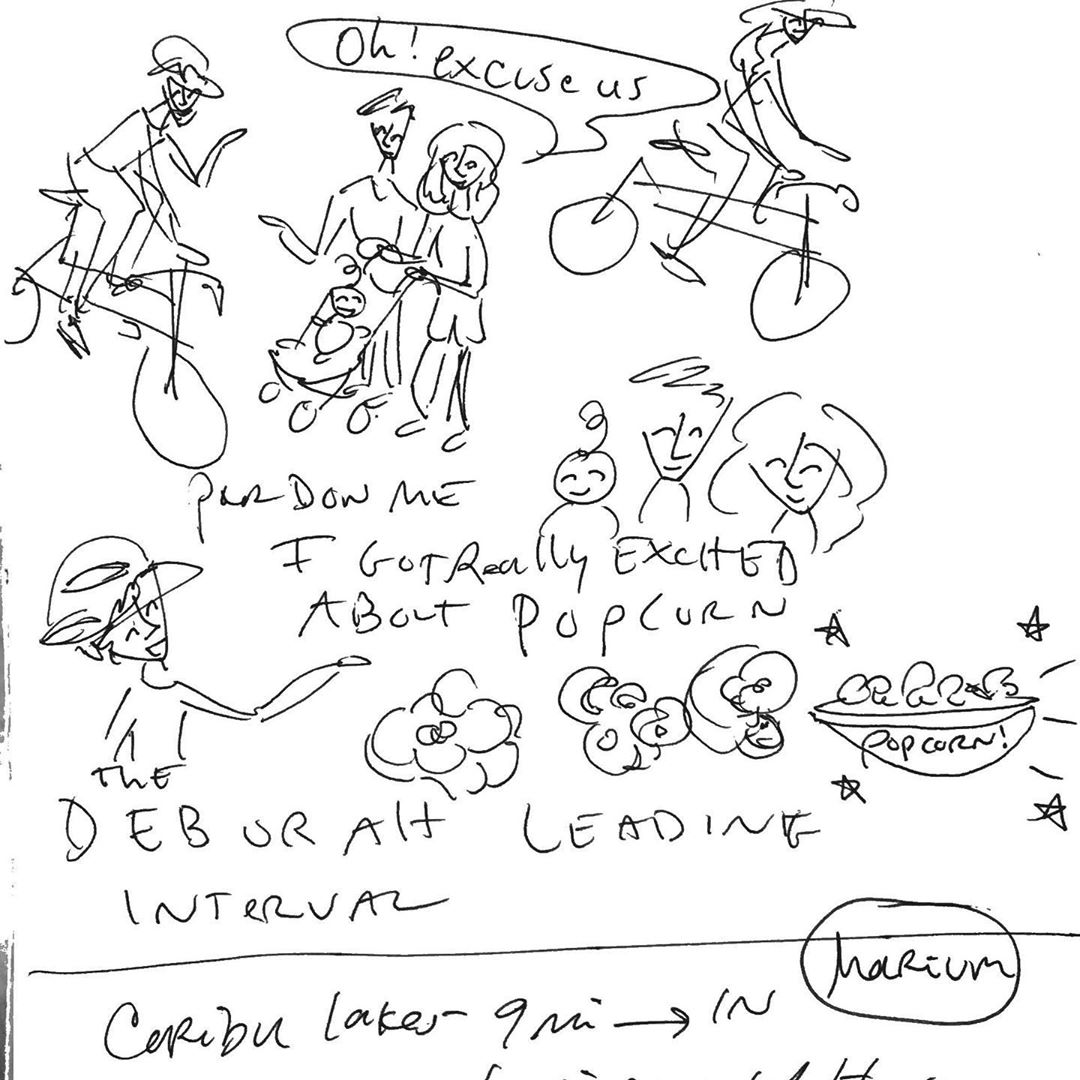 Oh! excuse us
PARDON ME
I GOT REAlly EXCITED
ABOUT POPCORN
POPCORN!
THE
DEBORAH LEADING
INTERVAL
MARIUM
Caribu lake - 9 mi → IN